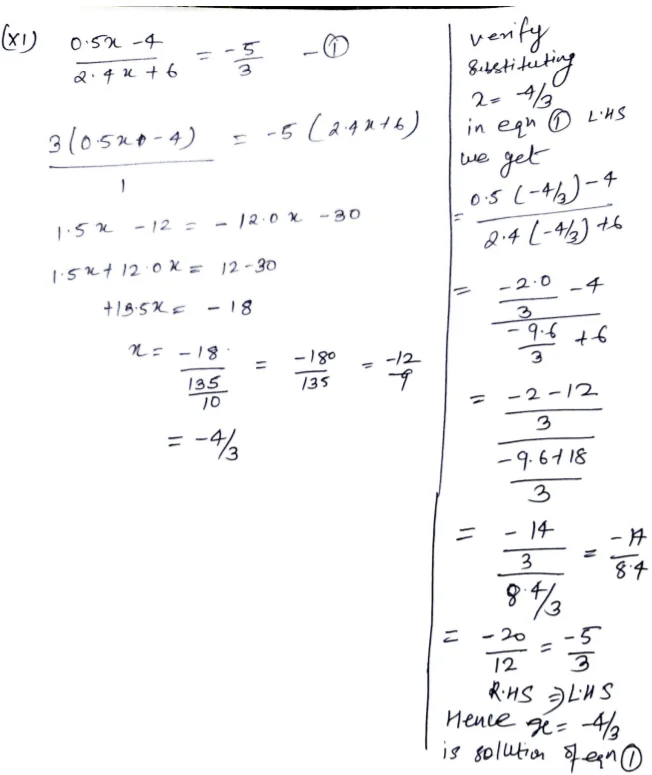 (XI) (0.5x - 4)/(2.4x + 6) = -5/3 - ①
3(0.5x - 4)/1 = -5(2.4x+6)
1.5x - 12 = - 12.0x - 30
1.5x + 12.0x = 12-30
+13.5x = - 18
x = -18/(135/10) = -180/135 = -12/9
= -4/3
verify
Substituting
x = -4/3
in eqn ① L.HS
we get
= (0.5(-4/3) - 4)/(2.4(-4/3) + 6)
= (-2.0/3 - 4)/(-9.6/3 + 6)
= ((-2-12)/3)/((-9.6+18)/3)
= (-14/3)/(8.4/3) = -14/8.4
= -20/12 = -5/3
R.HS ⇒ L.HS
Hence x = -4/3
is solution of eqn ①